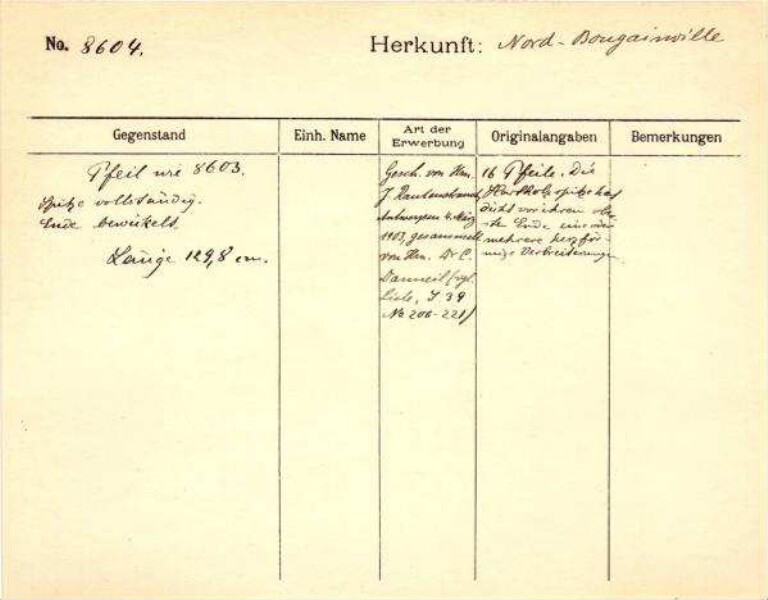 No. 8604.
Herkunft: Nord-Bougainville
Gegenstand
Einh. Name
Art der
Erwerbung
Originalangaben
Bemerkungen
Pfeil wie 8603.
Spitze vollständig.
Ende bewickelt.
Länge 129,8 cm.
Gesch. von Hrn.
J. Rautenstrauch,
Antwerpen 4. März
1903, gesammelt
von Hrn. Dr C.
Danneil (vgl.
Liste, S. 39
No 206-221)
16 Pfeile. Die
Hartholzspitze hat
dicht vor ihrem obe-
ren Ende eine oder
mehrere herzför-
mige Verbreiterungen